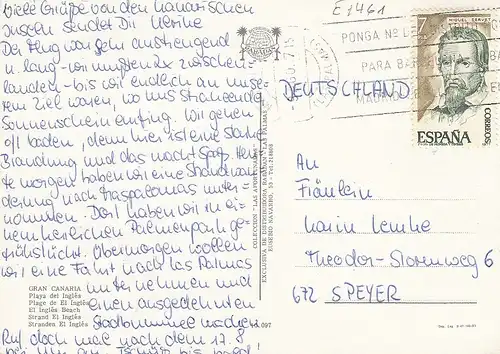 Viele Grüße von den kanarischen
Inseln sendet Dir
Der Flug war sehr anstrengend
u. lang - wir mußten 2x zwischen-
landen - bis wir endlich an unse-
rem Ziel waren, wo uns strahlender
Sonnenschein empfing. Wir gehen
oft baden, denn hier ist eine starke
Brandung und das macht Spaß. Heu-
te morgen haben wir eine Strandwan-
derung nach Maspalomas unter-
nommen. Dort haben wir in ei-
nem herrlichen Palmenpark ge-
frühstückt. Übermorgen wollen
wir eine Fahrt nach Las Palmas
unternehmen und
einen ausgedehnten
Stadtbummel machen.
Ruf doch mal nach dem 17.8
GRAN CANARIA
Playa del Inglés
Plage de El Inglés
El Inglés Beach
Strand El Inglés
Stranden El Inglés
COLECCION "LAS AFORTUNADAS"
EXCLUSIVA DE DISTRIBUIDORA DAMASON (LAS PALMAS)
EUSEBIO NAVARRO,
097
E 1461
PONGA Nº DE
PARA
MADRID
DEUTSCHLAND
7
MIGUEL SERVET
CORREOS
ESPAÑA
An
Fräulein
Karin Lemke
Theodor-Storm weg 6
672 SPEYER